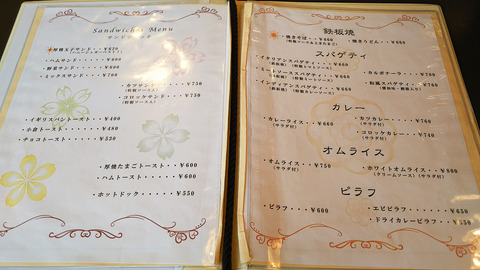 Sandwiches Menu
サンドウィッチ
厚焼玉子サンド・・¥620
ハムサンド・・・・¥500
野菜サンド・・・・¥500
ミックスサンド・・¥700
カツサンド・・・¥750
(特製ソース入)
コロッケサンド・・¥750
(特製ソース入)
イギリスパントースト・・¥400
小倉トースト・・・・¥480
チョコトースト・・・¥520
厚焼たまごトースト・・¥600
ハムトースト・・・・¥600
ホットドック・・・・¥550
鉄板焼
焼きそば・・・¥660
焼きうどん・・¥660
スパゲティ
イタリアンスパゲティ・・¥660
ミートソーススパゲティ・・¥660
インディアンスパゲティ・・¥660
カルボナーラ・・・¥700
和風スパゲティ・・¥760
カレー
カレーライス・・¥660
(サラダ付)
カツカレー・・・¥760
(サラダ付)
コロッケカレー・・¥740
(サラダ付)
オムライス
オムライス・・・¥750
(サラダ付)
ホワイトオムライス・・¥800
(クリームソース)(サラダ付)
ピラフ
ピラフ・・・・¥600
エビピラフ・・・・・¥650
ドライカレーピラフ・・¥650